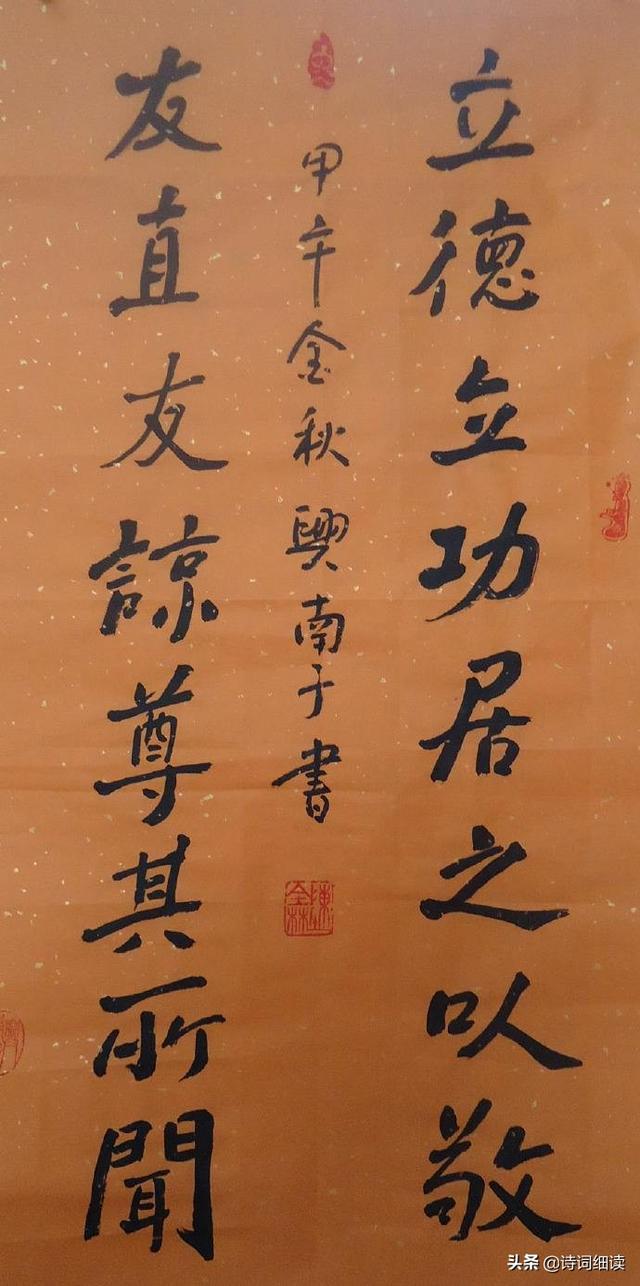 立德立功居之以敬
甲午金秋興南于書
友直友諒尊其所聞
陳全林
头条 @诗词细读